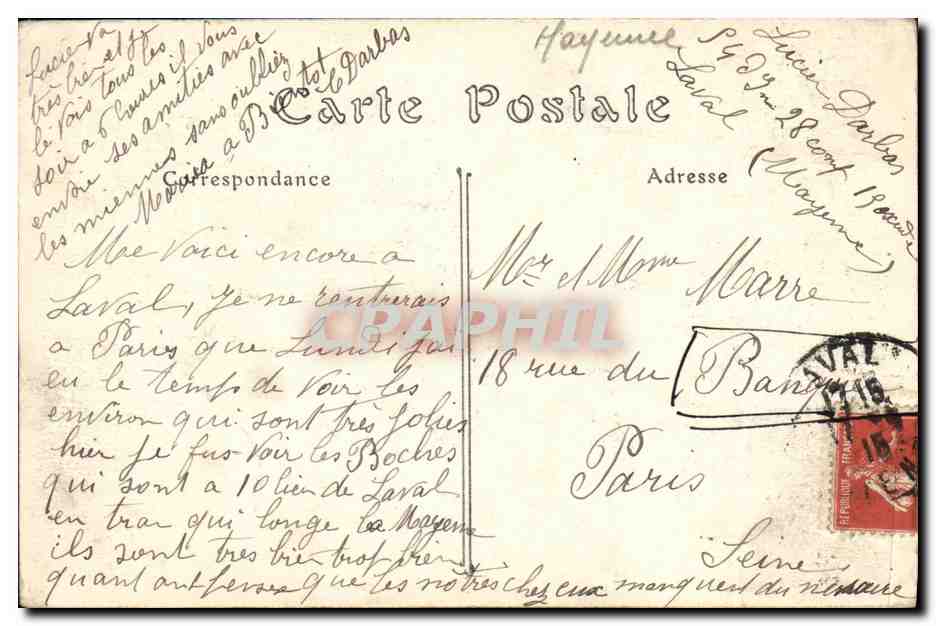 Mayenne
Carte Postale
Correspondance
Adresse
Me voici encore a
Laval, je ne rentrerais
a Paris que Lundi jai
eu le temps de voir les
environ qui sont très jolies
hier je fus voir les Boches
qui sont a 10 lieu de Laval
en tran qui longe la Mayenne
ils sont tres bien trop bien
quant ont pense que les notres chez eux manquent du nessaire
Lucien va
très bien et je
le vois tous les
soir a 6 heures il vous
envoie ses amitiés avec
les miennes sans oubliez
Maria a Bientot
C Darbas
Lucien Darbas
28 comp
Laval
(Mayenne)
Mr et Mme
Marre
18 rue du
Banquier
Paris
Seine
LAVAL
17 15
15
REPUBLIQUE FRANC
CPAPHIL